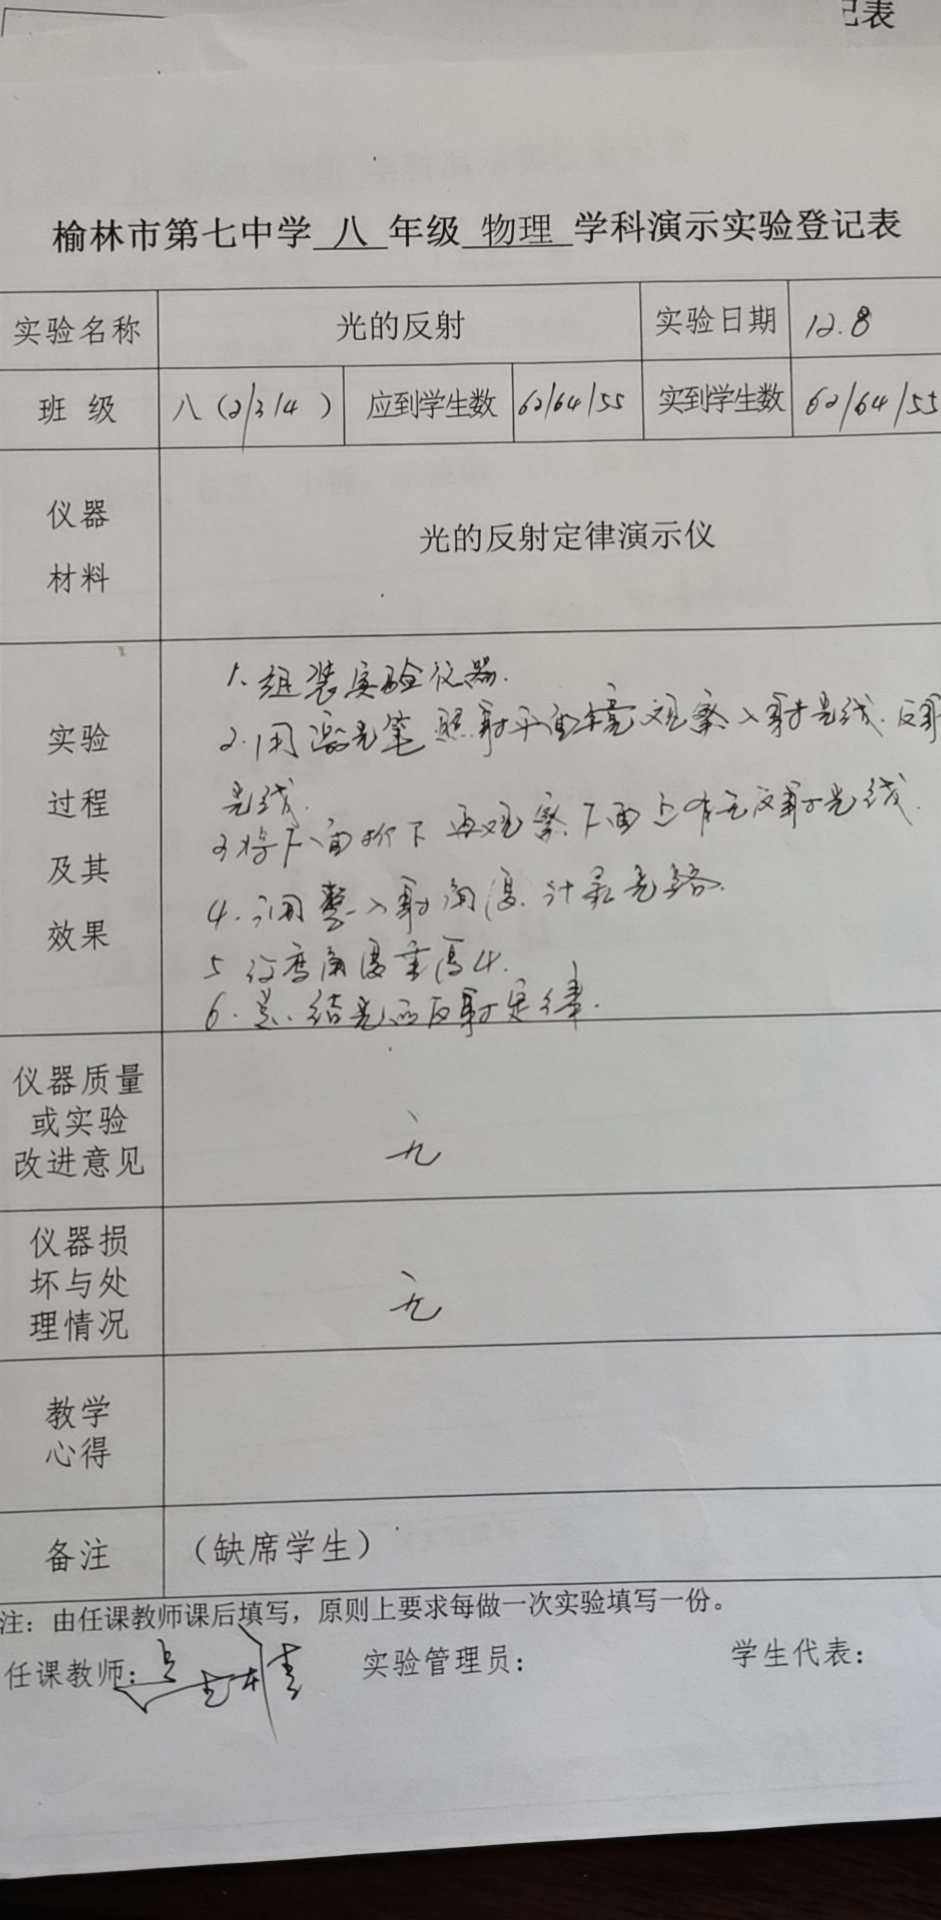 记表
榆林市第七中学 八 年级 物理 学科演示实验登记表
实验名称 光的反射 实验日期 12.8
班 级 八（2/3/4 ） 应到学生数 62/64/55 实到学生数 62/64/55
仪器
材料
光的反射定律演示仪
实验
过程
及其
效果
1. 组装实验仪器.
2. 用激光笔照射平面镜观察入射光线.反射
光线.
3 将下面折下 再观察下面上有无反射光线.
4. 调整入射角度.记录光路.
5 改变角度重复4.
6. 总结光的反射定律.
仪器质量
或实验
改进意见
无
仪器损
坏与处
理情况
无
教学
心得
备注 （缺席学生）
注：由任课教师课后填写，原则上要求每做一次实验填写一份。
任课教师： 实验管理员： 学生代表：